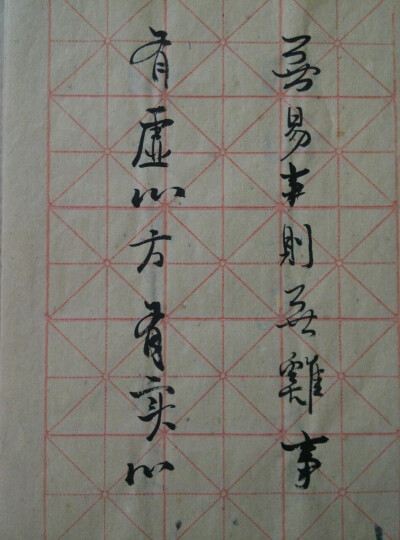 無易事則無難事
有虛心方有实心